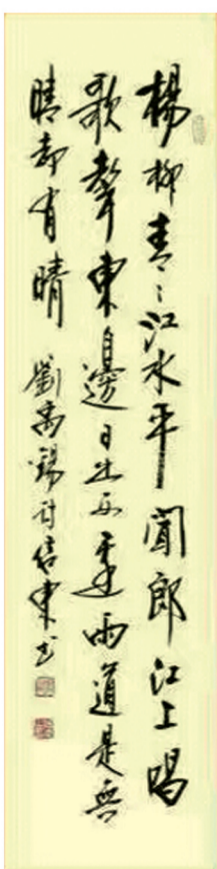 楊柳青々江水平聞郎江上唱
歌聲東邊日出西邊雨道是無
晴却有晴 劉禹錫詩 東书